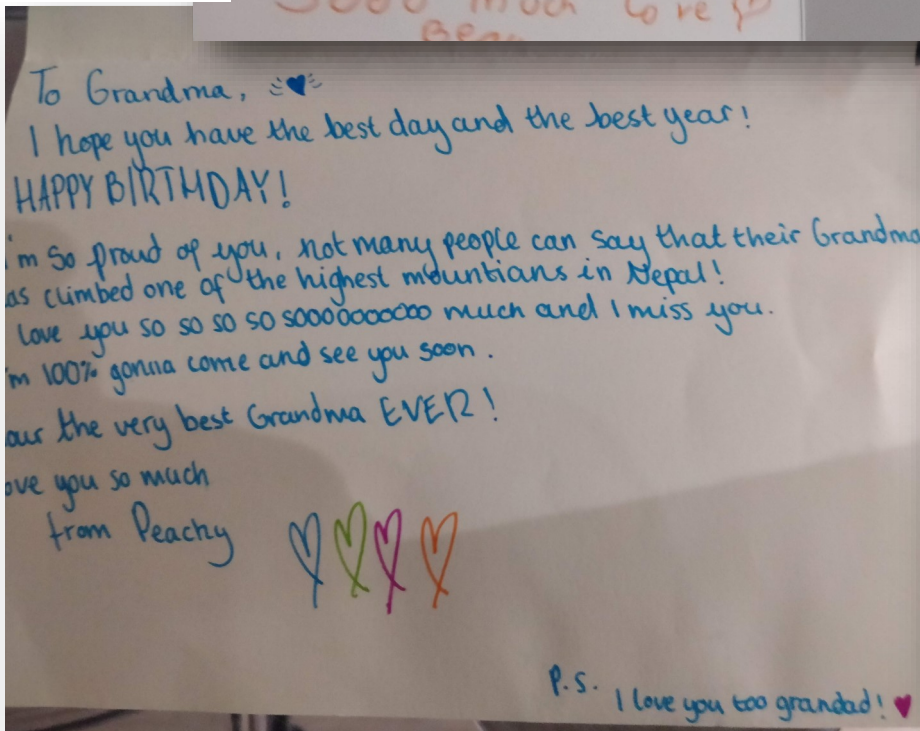 Sooo much love
To Grandma,
I hope you have the best day and the best year!
HAPPY BIRTHDAY!
'm so proud of you, not many people can say that their Grandma
as climbed one of the highest mountians in Nepal!
love you so so so so soooooooooo much and I miss you.
'm 100% gonna come and see you soon.
our the very best Grandma EVER!
ove you so much
from Peachy
P.S.
I love you too grandad!